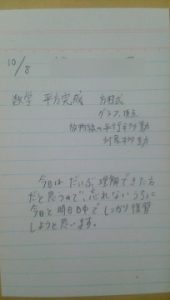 10/8
数学 平方完成 方程式
グラフ、頂点
放物線の平行移動
対称移動
今日は だいぶ 理解できた方
だと思うので、忘れないうちに
今日と明日中で しっかり復習
しようと思います。